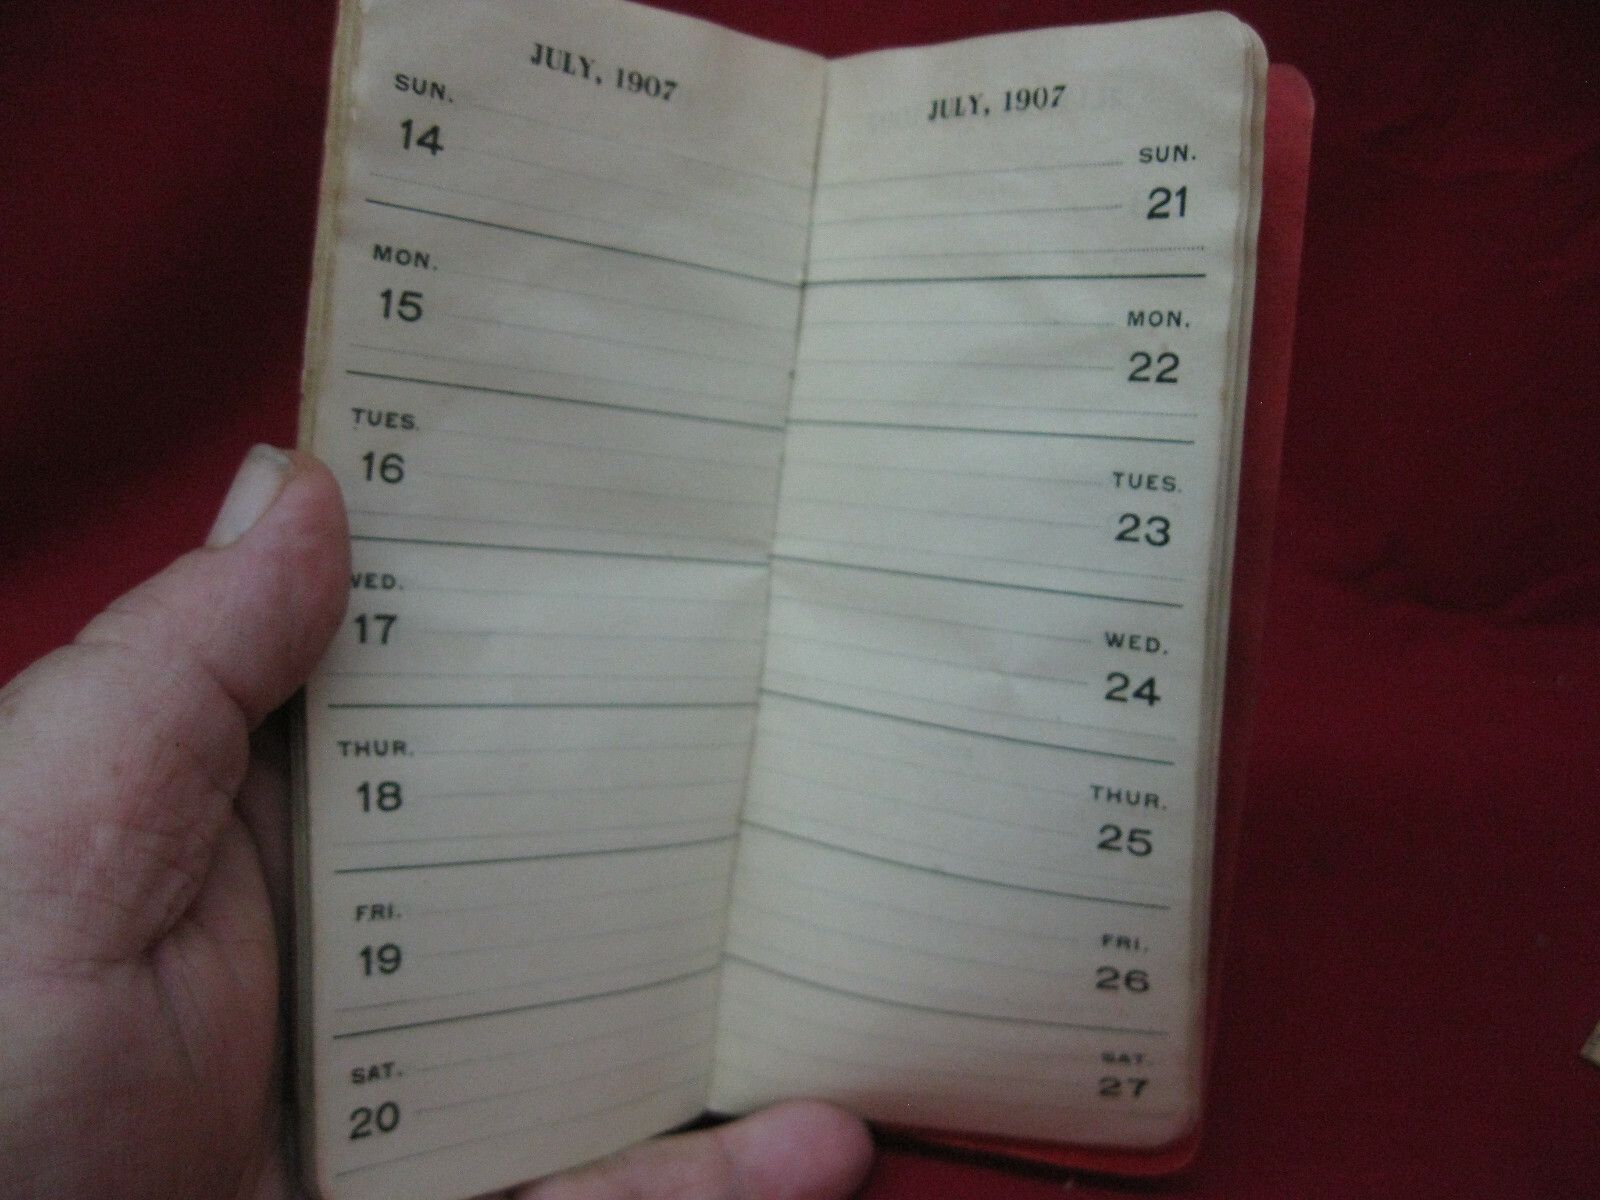 JULY, 1907
SUN.
14
MON.
15
TUES.
16
WED.
17
THUR.
18
FRI.
19
SAT.
20
JULY, 1907
SUN.
21
MON.
22
TUES.
23
WED.
24
THUR.
25
FRI.
26
SAT.
27